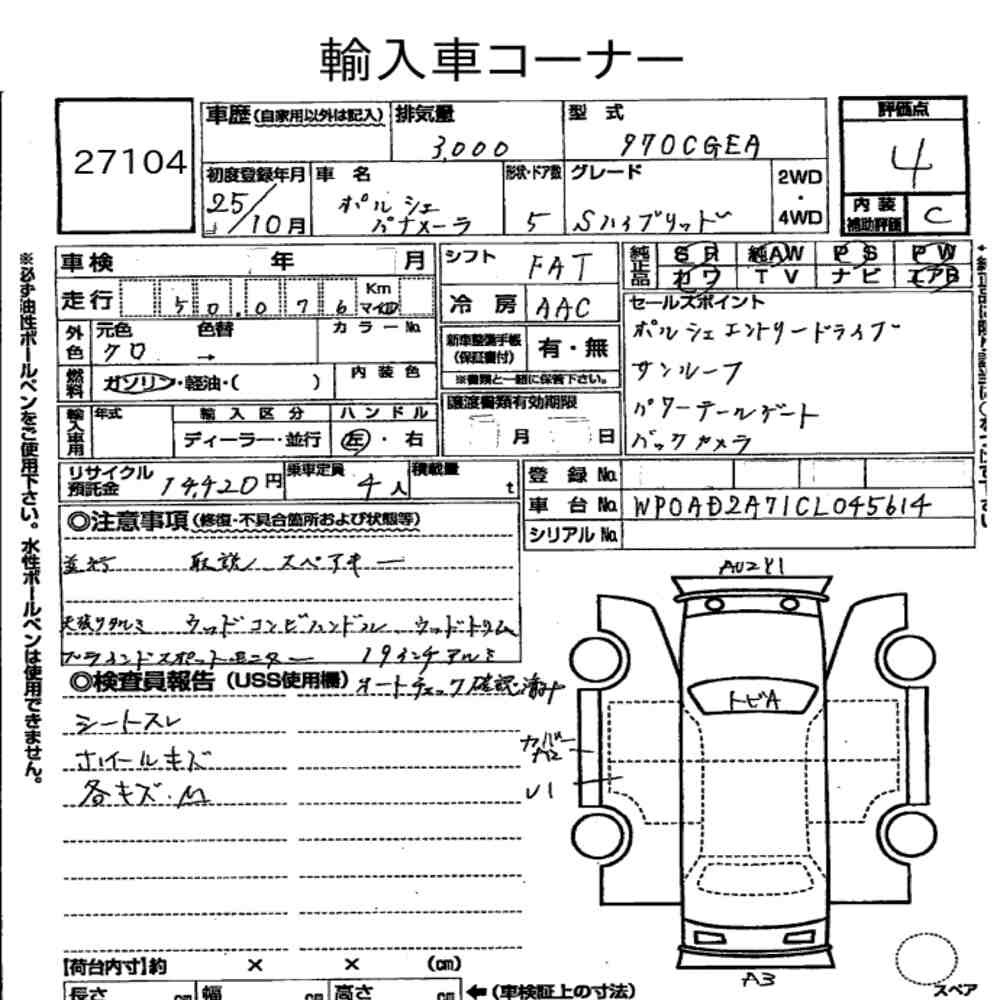 輸入車コーナー
27104
車歴(自家用以外は記入)
排気量
3,000
型式
970CGEA
評価点
4
初度登録年月
25/10月
車名
ポルシェ
パナメーラ
形状・ドア数
5
グレード
Sハイブリッド
2WD
・
4WD
内装
補助評価
C
車検 年 月
シフト
FAT
純正品
SR 純AW PS PW
カワ TV ナビ エアB
走行 50,076 Km マイル
冷房
AAC
セールスポイント
ポルシェエントリードライブ
サンルーフ
パワーテールゲート
バックカメラ
外色
元色 色替 カラーNo.
クロ →
新車整備手帳
(保証書付)
有・無
※書類と一緒に保管下さい。
燃料
ガソリン・軽油・( )
内装色
輸入車用
年式
輸入区分
ハンドル
ディーラー・並行
左・右
譲渡書類有効期限
月 日
リサイクル
預託金
14,420円
乗車定員
4人
積載量
t
登録No.
車台No.
WP0AD2A71CL045614
シリアルNo.
◎注意事項(修復・不具合箇所および状態等)
並行 取説、スペアキー
天張りタルミ ウッドコンビハンドル ウッドトリム
ブラインドスポットモニター 19インチアルミ
◎検査員報告(USS使用欄)オートチェック確認済み
シートスレ
ホイールキズ
各キズ・M
AU2Y1
トビA
カバー
U1
A3
スペア
【荷台内寸】約 × × (cm)
長さ cm 幅 cm 高さ cm ←(車検証上の寸法)
※必ず油性ボールペンをご使用下さい。水性ボールペンは使用できません。